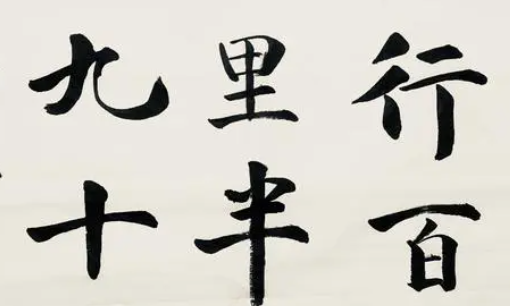 行百
里半
九十